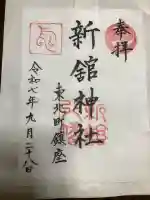 奉拝
新舘神社
東北町鎮座
令和七年九月二十八日